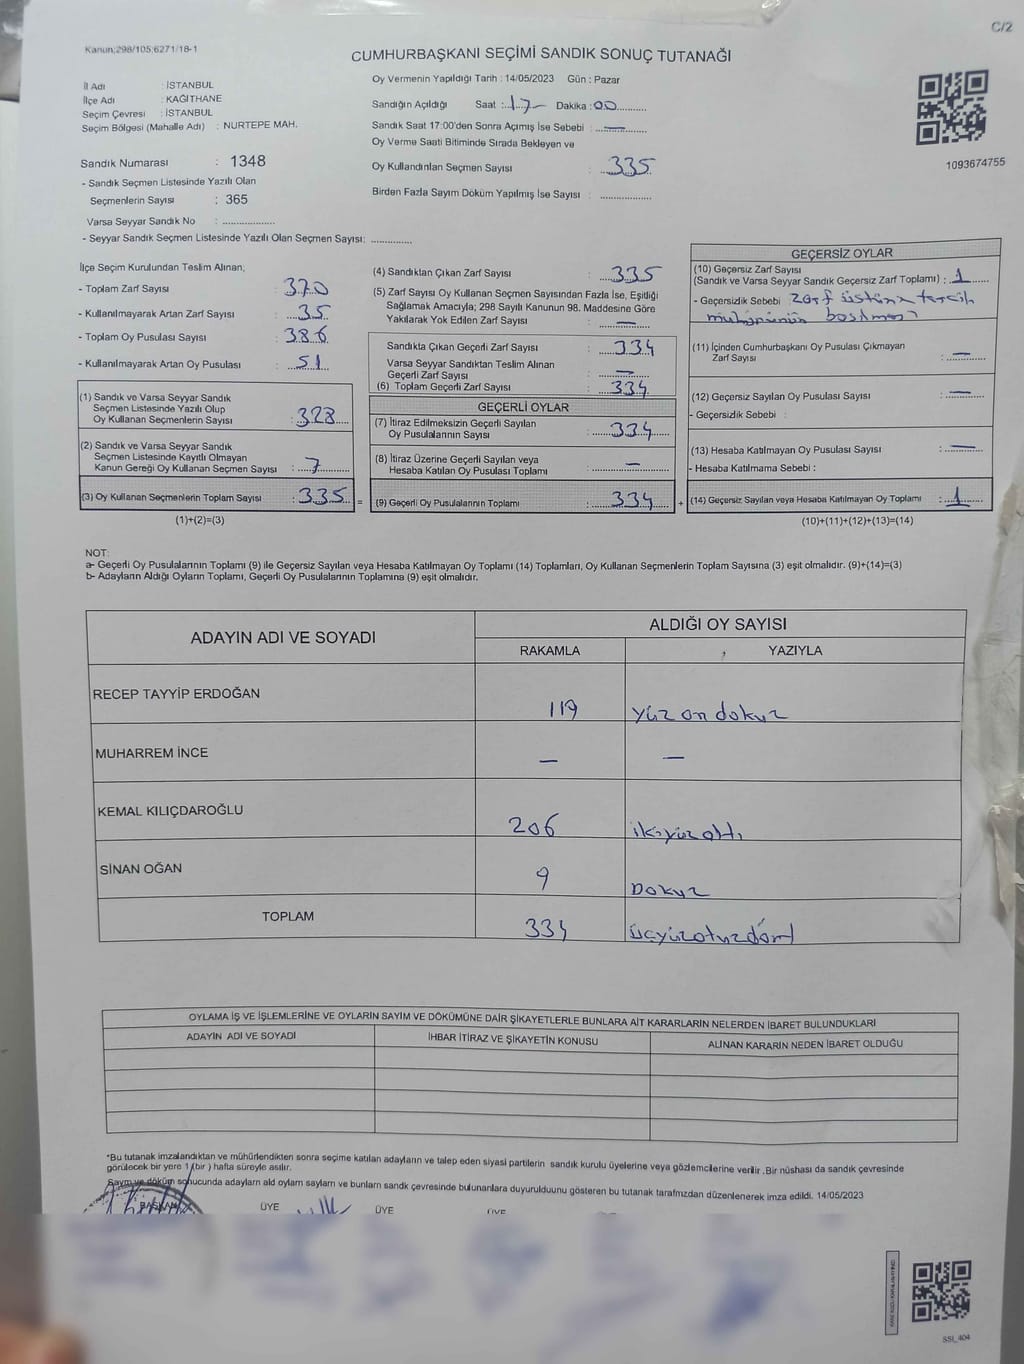 C/2
Kanun;298/105;6271/18-1
CUMHURBAŞKANI SEÇİMİ SANDIK SONUÇ TUTANAĞI
İl Adı : İSTANBUL
İlçe Adı : KAĞITHANE
Seçim Çevresi : İSTANBUL
Seçim Bölgesi (Mahalle Adı) : NURTEPE MAH.
Sandık Numarası : 1348
- Sandık Seçmen Listesinde Yazılı Olan
Seçmenlerin Sayısı : 365
Varsa Seyyar Sandık No : ....................
- Seyyar Sandık Seçmen Listesinde Yazılı Olan Seçmen Sayısı: ...............
Oy Vermenin Yapıldığı Tarih : 14/05/2023 Gün : Pazar
Sandığın Açıldığı Saat : 17 Dakika : 00
Sandık Saat 17:00'den Sonra Açımış İse Sebebi : —
Oy Verme Saati Bitiminde Sırada Bekleyen ve
Oy Kullandırılan Seçmen Sayısı : 335
Birden Fazla Sayım Döküm Yapılmış İse Sayısı : ....................
1093674755
İlçe Seçim Kurulundan Teslim Alınan;
- Toplam Zarf Sayısı : 370
- Kullanılmayarak Artan Zarf Sayısı : 35
- Toplam Oy Pusulası Sayısı : 386
- Kullanılmayarak Artan Oy Pusulası : 51
(1) Sandık ve Varsa Seyyar Sandık
Seçmen Listesinde Yazılı Olup
Oy Kullanan Seçmenlerin Sayısı : 328
(2) Sandık ve Varsa Seyyar Sandık
Seçmen Listesinde Kayıtlı Olmayan
Kanun Gereği Oy Kullanan Seçmen Sayısı : 7
(3) Oy Kullanan Seçmenlerin Toplam Sayısı : 335 =
(1)+(2)=(3)
(4) Sandıktan Çıkan Zarf Sayısı : 335
(5) Zarf Sayısı Oy Kullanan Seçmen Sayısından Fazla İse, Eşidiği
Sağlamak Amacıyla; 298 Sayılı Kanunun 98. Maddesine Göre
Yakılarak Yok Edilen Zarf Sayısı : —
Sandıkta Çıkan Geçerli Zarf Sayısı : 334
Varsa Seyyar Sandıktan Teslim Alınan
Geçerli Zarf Sayısı : —
(6) Toplam Geçerli Zarf Sayısı : 334
GEÇERLİ OYLAR
(7) İtiraz Edilmeksizin Geçerli Sayılan
Oy Pusulalarının Sayısı : 334
(8) İtiraz Üzerine Geçerli Sayılan veya
Hesaba Katılan Oy Pusulası Toplamı : —
(9) Geçerli Oy Pusulalarının Toplamı : 334 +
GEÇERSİZ OYLAR
(10) Geçersiz Zarf Sayısı
(Sandık ve Varsa Seyyar Sandık Geçersiz Zarf Toplamı) : 1
- Geçersizlik Sebebi : zarf üstüne tercih
mührünün basılması
(11) İçinden Cumhurbaşkanı Oy Pusulası Çıkmayan
Zarf Sayısı : —
(12) Geçersiz Sayılan Oy Pusulası Sayısı : —
- Geçersizlik Sebebi :
(13) Hesaba Katılmayan Oy Pusulası Sayısı : —
- Hesaba Katılmama Sebebi :
(14) Geçersiz Sayılan veya Hesaba Katılmayan Oy Toplamı : 1
(10)+(11)+(12)+(13)=(14)
NOT:
a- Geçerli Oy Pusulalarının Toplamı (9) ile Geçersiz Sayılan veya Hesaba Katılmayan Oy Toplamı (14) Toplamları, Oy Kullanan Seçmenlerin Toplam Sayısına (3) eşit olmalıdır. (9)+(14)=(3)
b- Adayların Aldığı Oyların Toplamı, Geçerli Oy Pusulalarının Toplamına (9) eşit olmalıdır.
ADAYIN ADI VE SOYADI
ALDIĞI OY SAYISI
RAKAMLA YAZIYLA
RECEP TAYYİP ERDOĞAN 119 yüz on dokuz
MUHARREM İNCE — —
KEMAL KILIÇDAROĞLU 206 ikiyüzaltı
SİNAN OĞAN 9 Dokuz
TOPLAM 334 üçyüzotuzdört
OYLAMA İŞ VE İŞLEMLERİNE VE OYLARIN SAYIM VE DÖKÜMÜNE DAİR ŞİKAYETLERLE BUNLARA AİT KARARLARIN NELERDEN İBARET BULUNDUKLARI
ADAYIN ADI VE SOYADI İHBAR İTİRAZ VE ŞİKAYETİN KONUSU ALINAN KARARIN NEDEN İBARET OLDUĞU
*Bu tutanak imzalandıktan ve mühürlendikten sonra seçime katılan adayların ve talep eden siyasi partilerin sandık kurulu üyelerine veya gözlemcilerine verilir .Bir nüshası da sandık çevresinde
görülecek bir yere 1 (bir ) hafta süreyle asılır.
Sayım ve döküm sonucunda adayların ald oylam saylarm ve bunlarm sandk çevresinde bulunanlara duyurulduunu gösteren bu tutanak tarafmzdan düzenlenerek imza edildi. 14/05/2023
BAŞKAN ÜYE ÜYE ÜYE
SSI_404